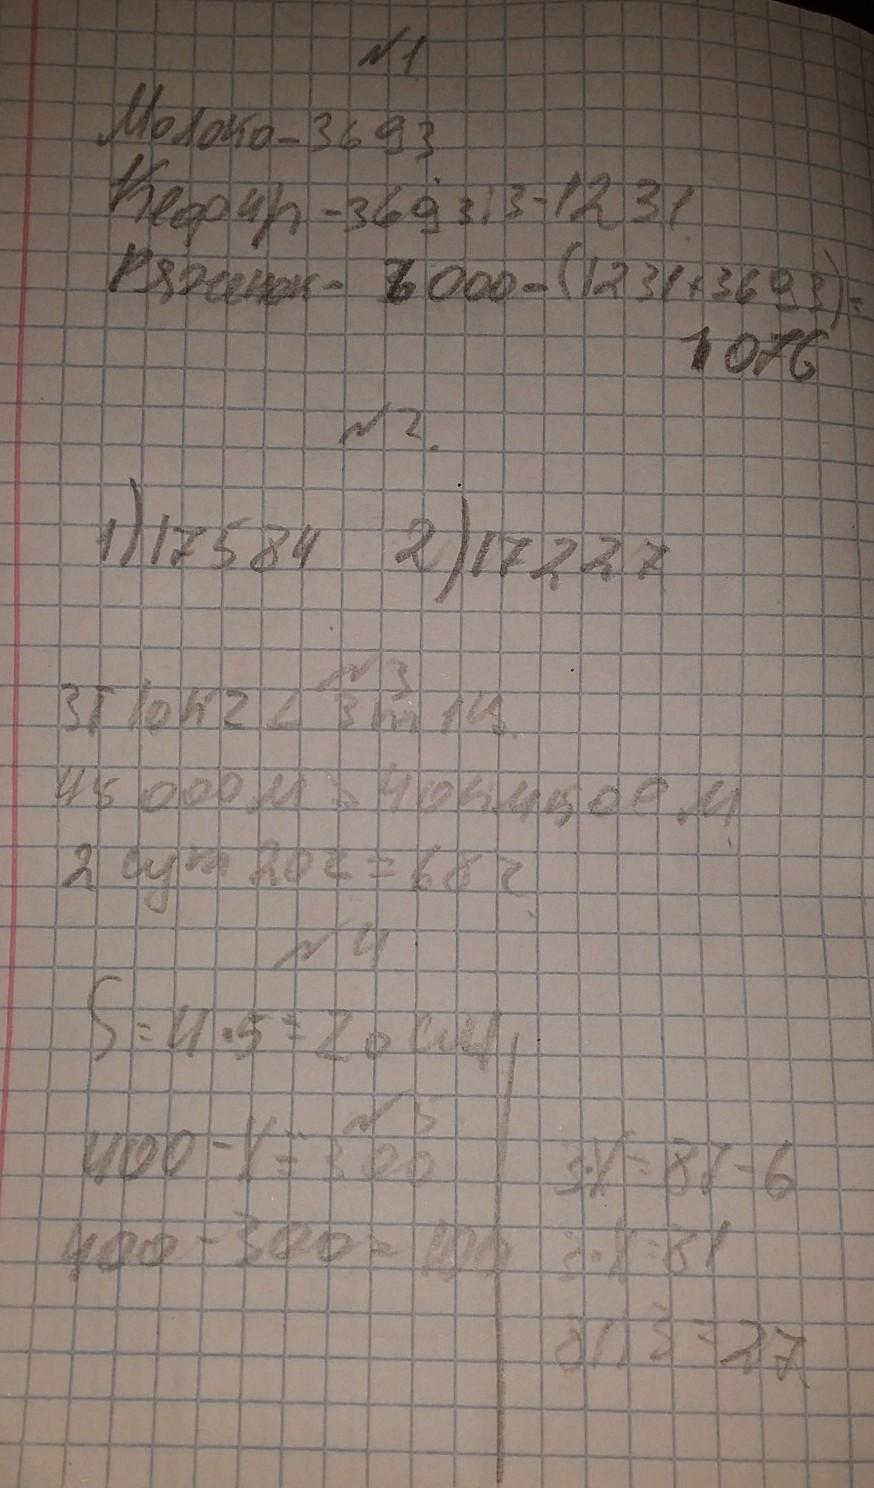 №1
Молоко - 3693
Кефир - 3693:3 - 1231
Ряженок - 6000 - (1231+3693) =
1076
№2.
1) 17584 2) 17227
№3
3т 10кг < 3т 1ц
45 000м > 40км500м
2 сут 20ч = 68ч
№4
S = 4·5 = 20 см
№5
400 - X = 300
3·X = 87 - 6
400 - 300 = 100
3·X = 81
81:3 = 27